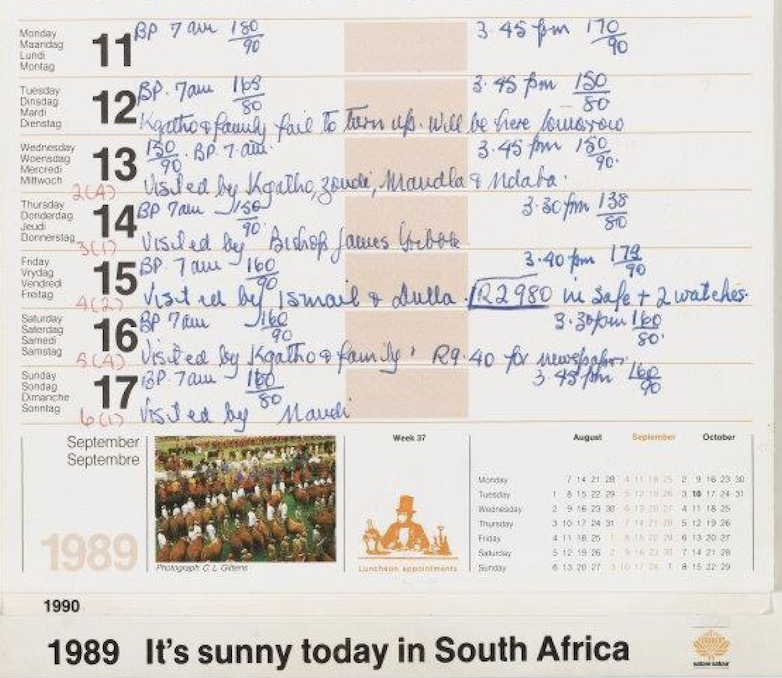 Monday
Maandag
Lundi
Montag
11
BP 7am 180/90 3.45pm 170/90
Tuesday
Dinsdag
Mardi
Dienstag
12
BP. 7am 165/80 3.45 pm 150/80
Kgatho & family fail to turn up. Will be here tomorrow
Wednesday
Woensdag
Mercredi
Mittwoch
13
2(4)
150/90. BP. 7am. 3.45pm 150/90.
Visited by Kgatho, Zondi, Mandla & Ndaba.
Thursday
Donderdag
Jeudi
Donnerstag
14
3(1)
BP 7am 150/90 3.30pm 138/80
Visited by Bishop James
Friday
Vrydag
Vendredi
Freitag
15
4(2)
BP. 7am 160/90 3.40pm 179/90
Visited by Ismail & Dulla. R2980 in safe + 2 watches.
Saturday
Saterdag
Samedi
Samstag
16
5(4)
BP 7am 160/90 3.30pm 160/80.
Visited by Kgatho & family, R9.40 for newspaper.
Sunday
Sondag
Dimanche
Sonntag
17
6(1)
BP. 7am 160/80 3.45pm 160/90
Visited by Mandi
September
Septembre
1989
Photograph: C. L. Gittens
Week 37
Luncheon appointments
August September October
Monday 7 14 21 28 4 11 18 25 2 9 16 23 30
Tuesday 1 8 15 22 29 5 12 19 26 3 10 17 24 31
Wednesday 2 9 16 23 30 6 13 20 27 4 11 18 25
Thursday 3 10 17 24 31 7 14 21 28 5 12 19 26
Friday 4 11 18 25 1 8 15 22 29 6 13 20 27
Saturday 5 12 19 26 2 9 16 23 30 7 14 21 28
Sunday 6 13 20 27 3 10 17 24 1 8 15 22 29
1990
1989 It's sunny today in South Africa
satour